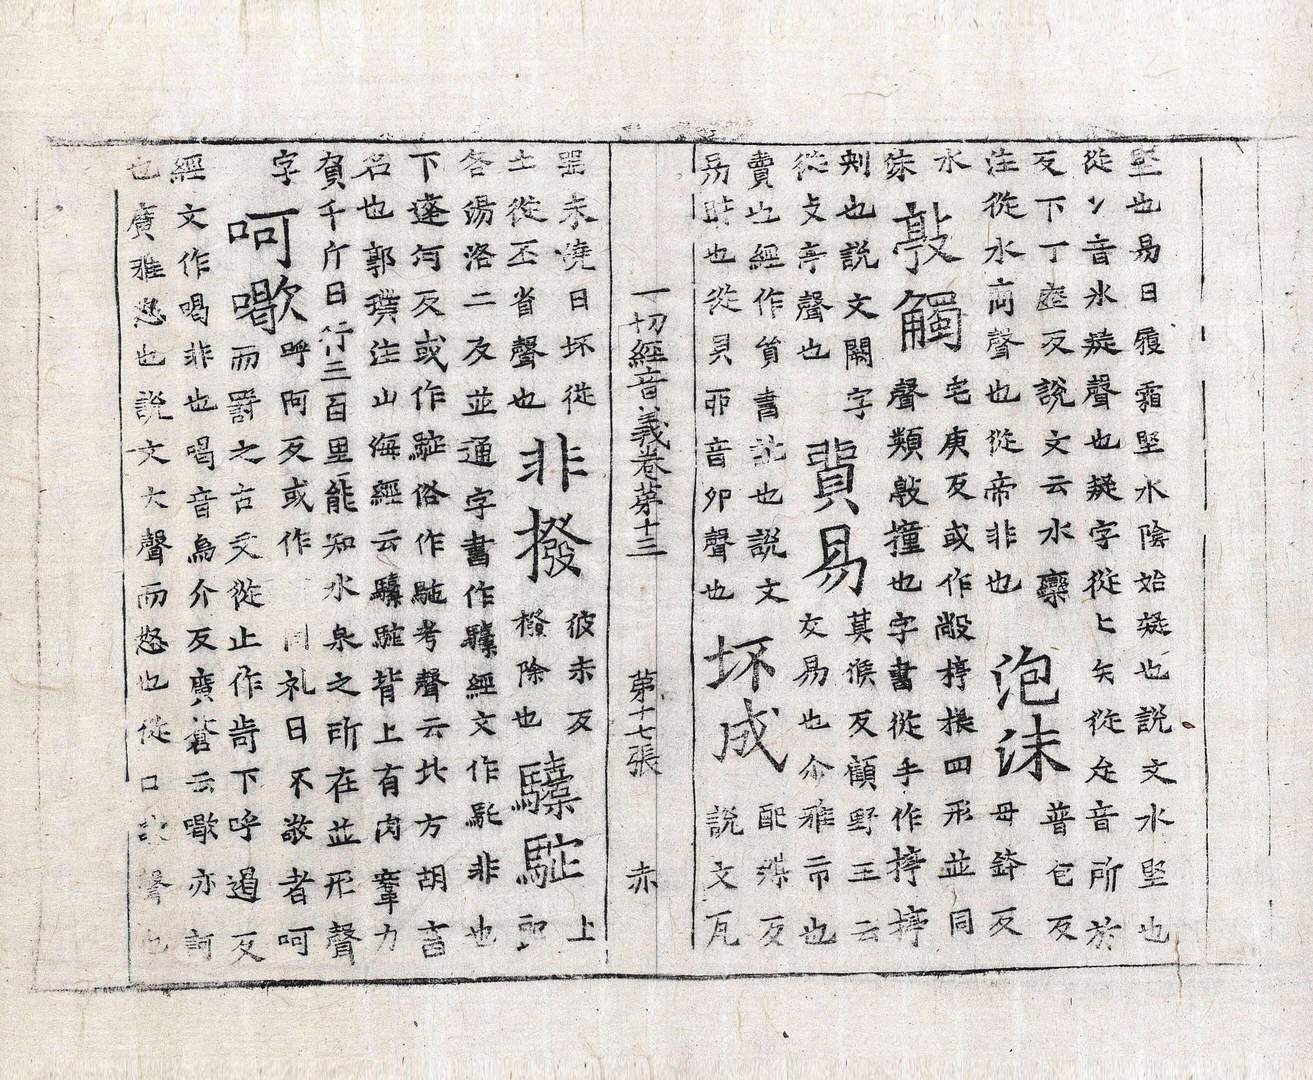 堅也易曰履霜堅氷陰始凝也說文水堅也
從冫音氷疑聲也疑字從匕矢從㐬音所於
反下丁歷反說文云水欒
注從水啇聲也從帝非也
泡沫
普包反
母鉢反
水
沫
敲觸
宅庚反或作敞揨棖四形並同
聲類敲撞也字書從手作揨揨
刺也說文闕字
從攴亭聲也
貿易
莫候反顧野王云
交易也尒雅市也
賣也經作貿書訛也說文
易財也從貝丣音卯聲也
坏成
配盃反
說文瓦
一切經音義卷第十三 第十七張 赤
器未燒曰坏從
土從丕省聲也
非撥
彼末反
撥除也
驝駝
上
各湯洛二反並通字書作驝經文作駞非也
下達河反或作駝俗作駞考聲云北方胡畜
名也郭璞注山海經云驝駝背上有肉鞌力
負千斤日行三百里能知水泉之所在並形聲
字
呵歜
呼阿反或作
周礼曰不敬者呵
而罸之古文從止作歭下呼遏反
經文作喝非也喝音烏介反廣蒼云歜亦訶
也廣雅怒也說文大聲而怒也從口歜聲也